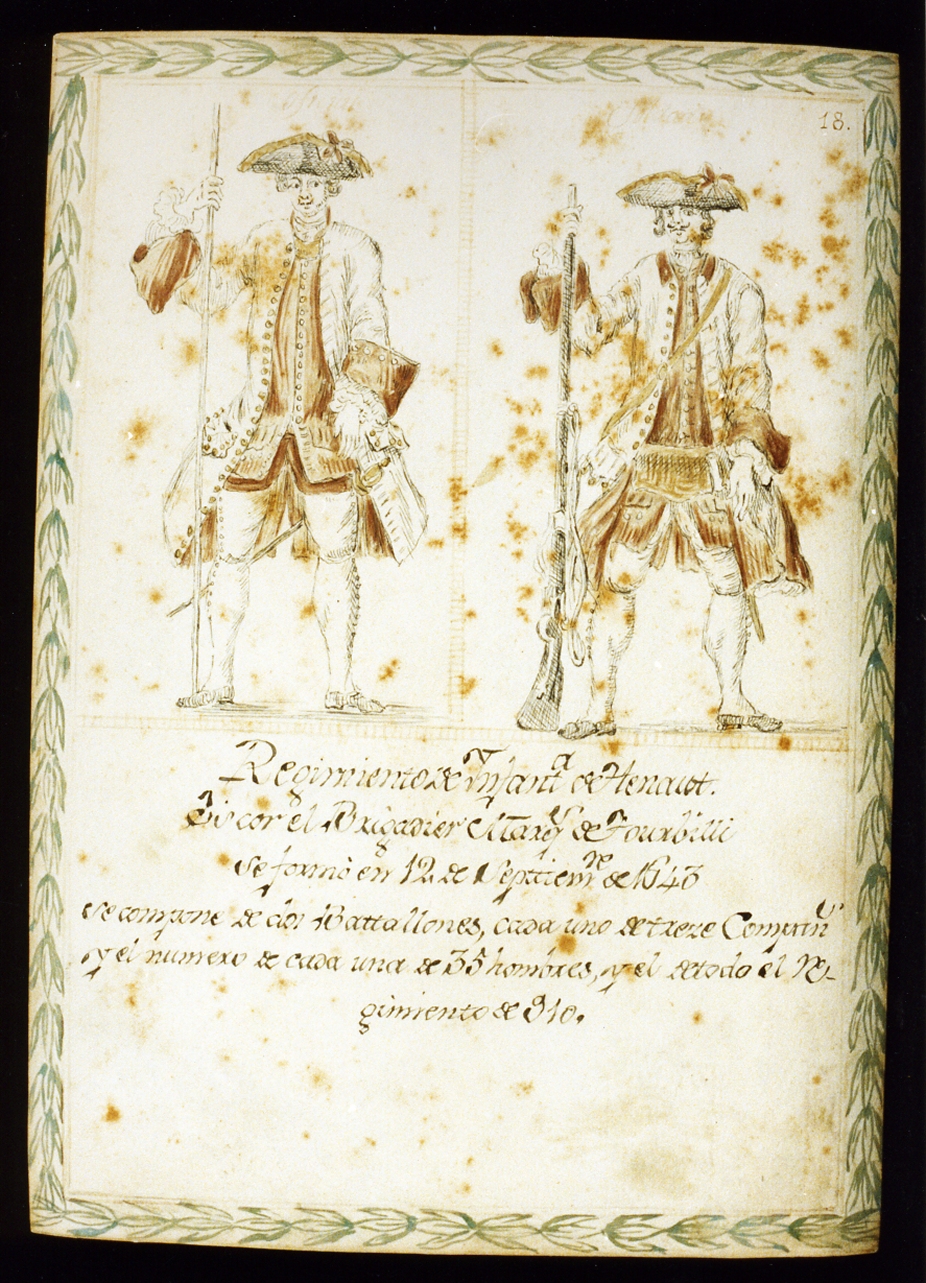 18.
Regimiento de Ynfant.ª de Henaut.
Es cor el Brigadier Marq.s de Tourbilli
se formò en 12 de Septtiem.re de 1643
se compone de dos Battallones, cada uno de treze Compañ.s
y el numero de cada una de 35 hombres, y el de todo el Re-
gimiento de 910.